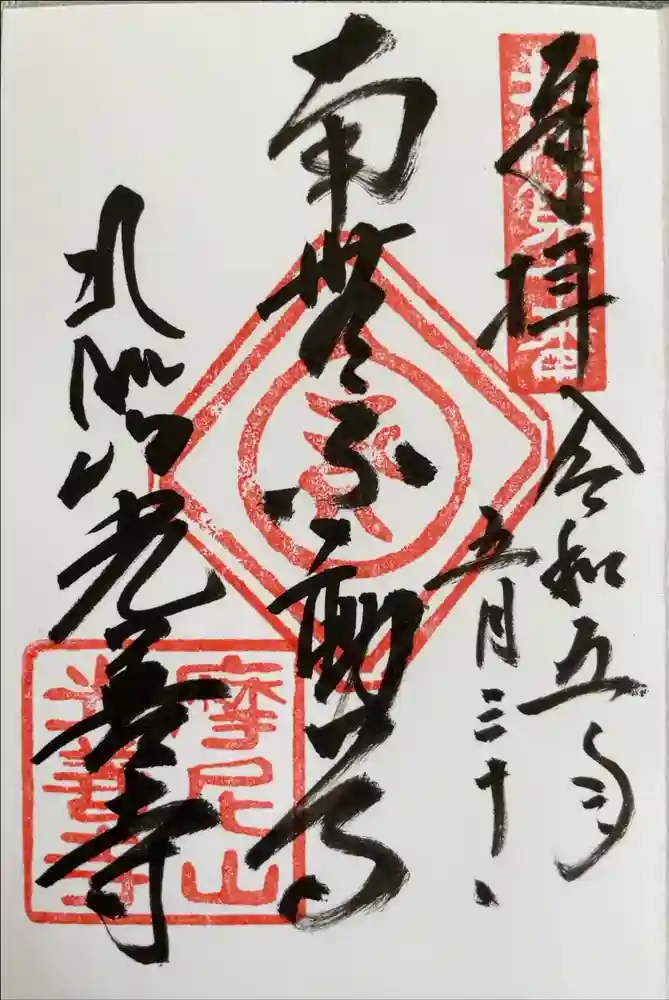 奉拝
令和五年
五月三十日
南無不動尊
山光善寺
摩尼山
光善寺